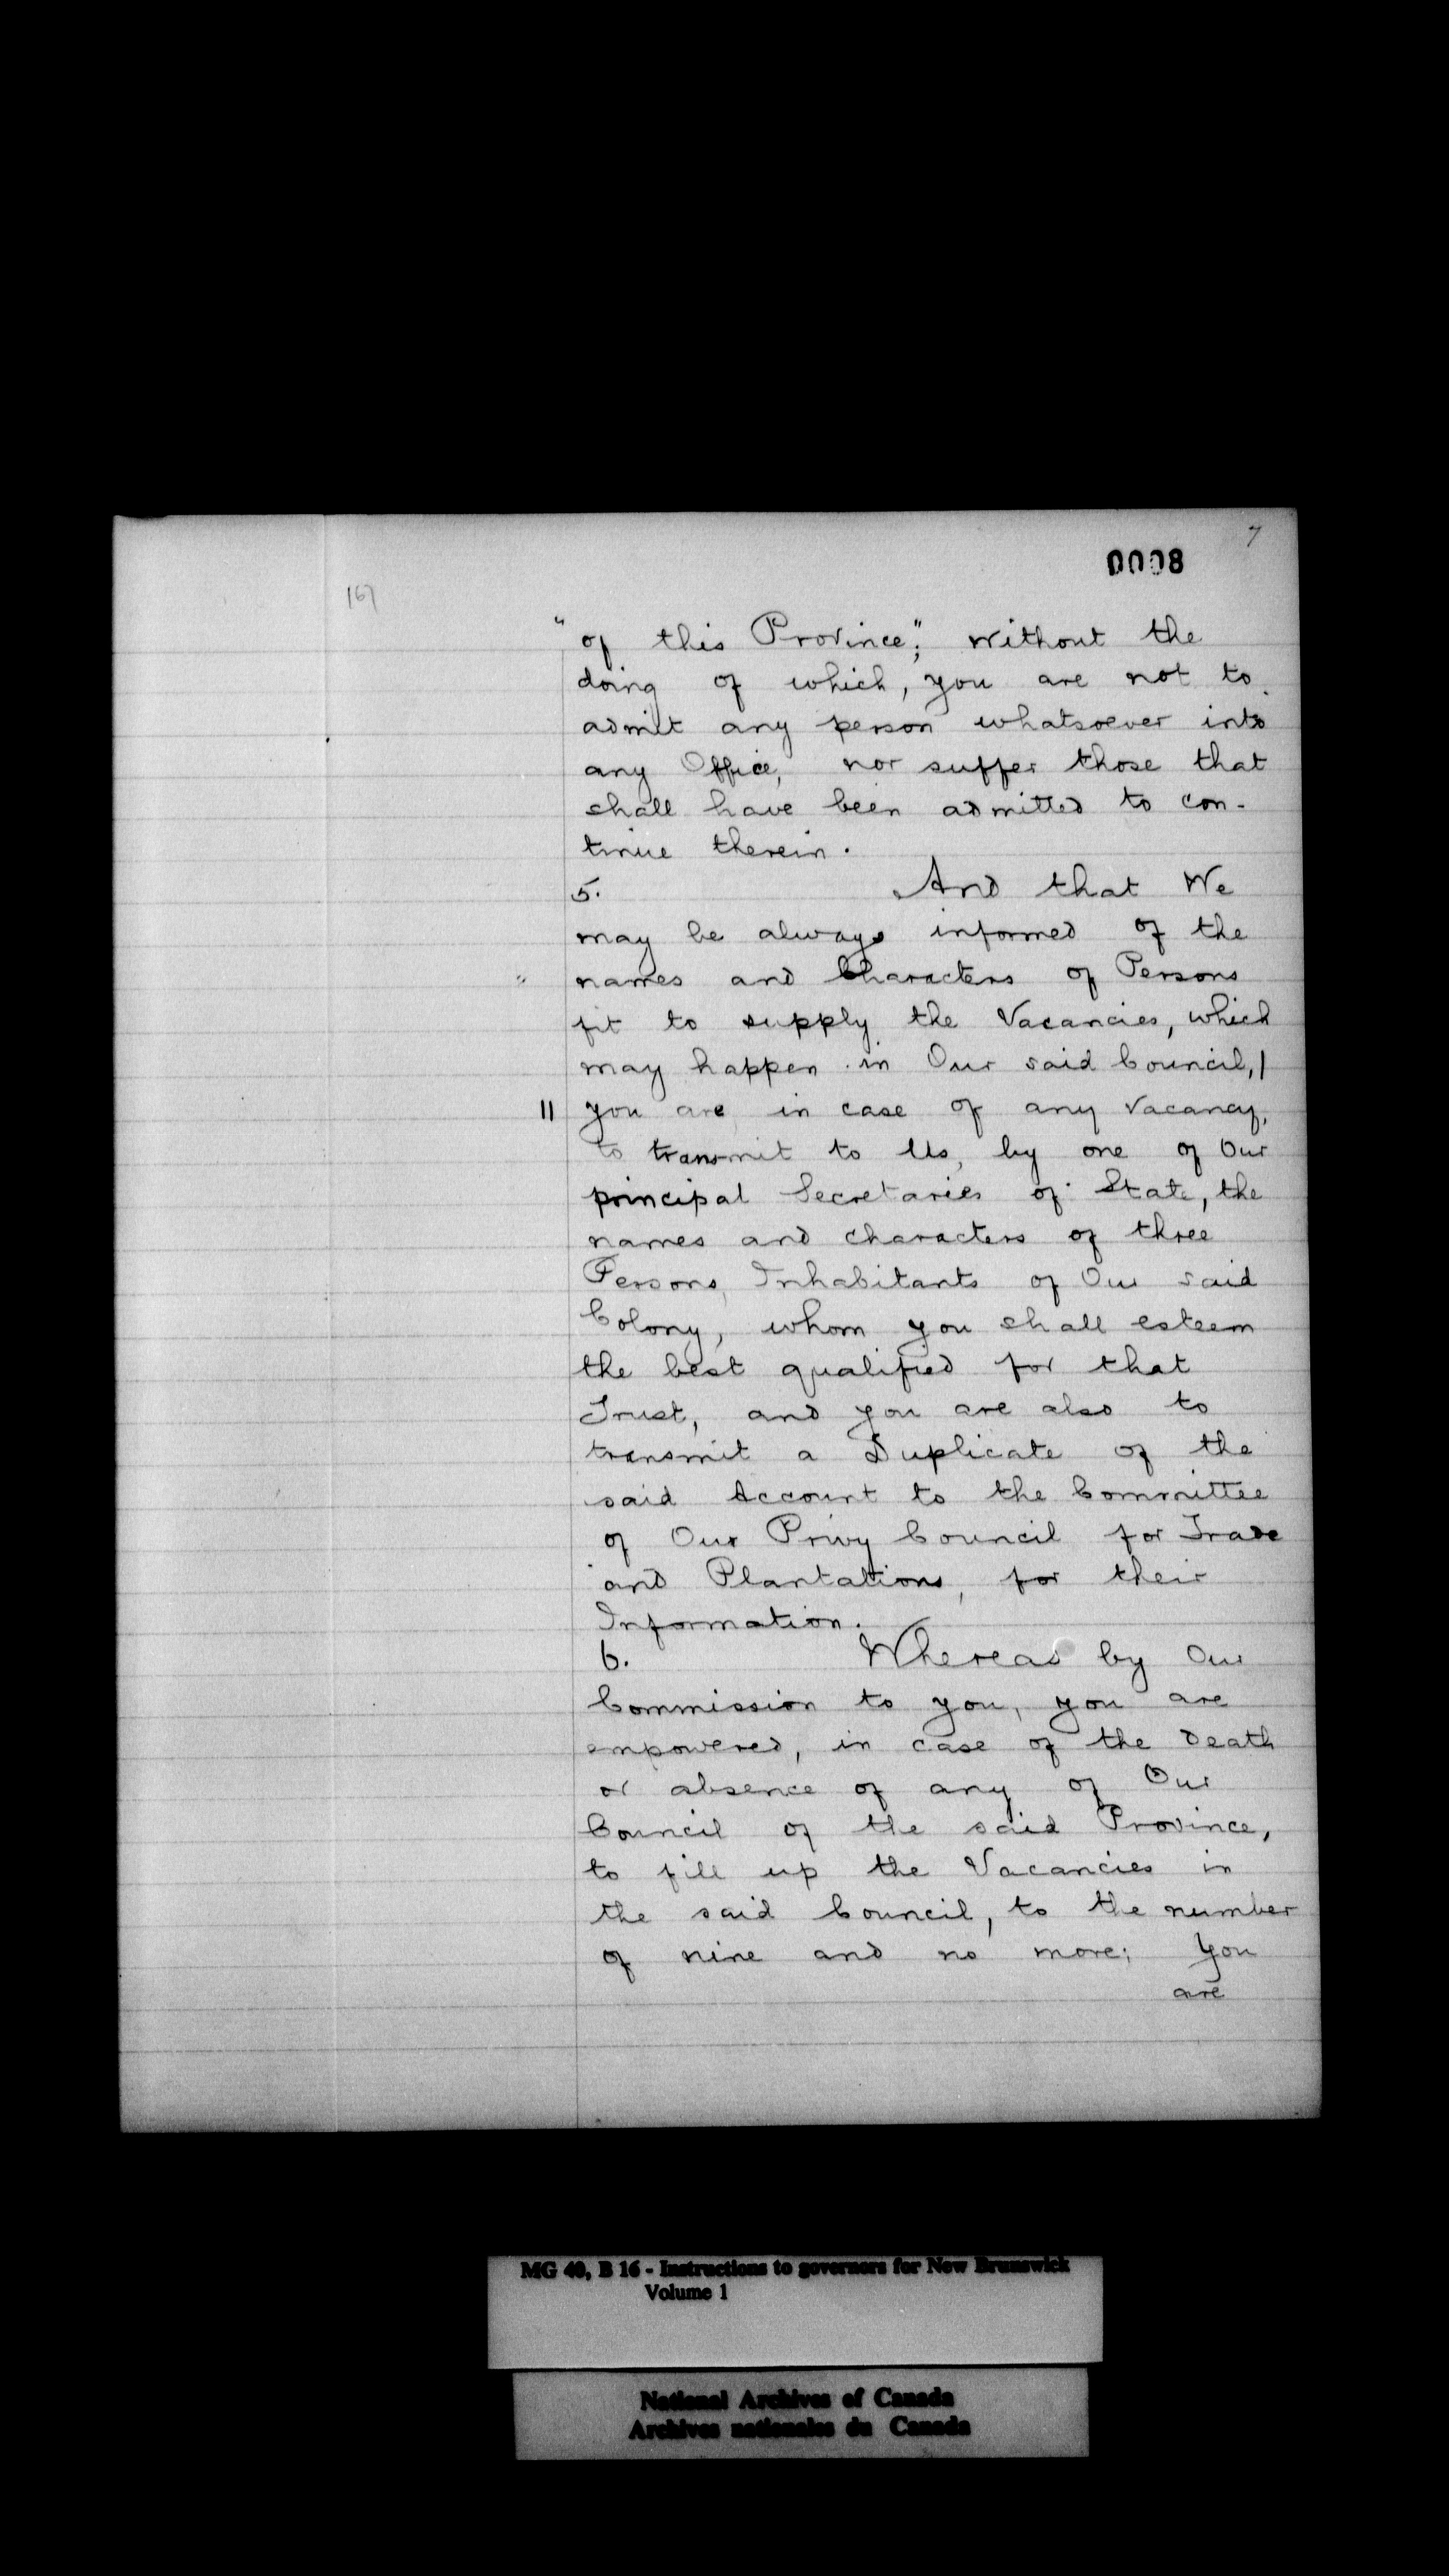 7
0008
167
"of this Province"; without the
doing of which, you are not to
admit any person whatsoever into
any Office, nor suffer those that
shall have been admitted to con-
tinue therein.
5. And that We
may be always informed of the
names and Characters of Persons
fit to supply the Vacancies, which
may happen in Our said Council, |
|| you are in case of any Vacancy,
to transmit to Us, by one of Our
principal Secretaries of State, the
names and characters of three
Persons, Inhabitants of Our said
Colony, whom you shall esteem
the best qualified for that
Trust, and you are also to
transmit a Duplicate of the
said Account to the Committee
of Our Privy Council for Trade
and Plantations, for their
Information.
6. Whereas by Our
Commission to you, you are
empowered, in case of the death
or absence of any of Our
Council of the said Province,
to fill up the Vacancies in
the said Council, to the number
of nine and no more; You
are
MG 40, B 16 - Instructions to governors for New Brunswick
Volume 1
National Archives of Canada
Archives nationales du Canada